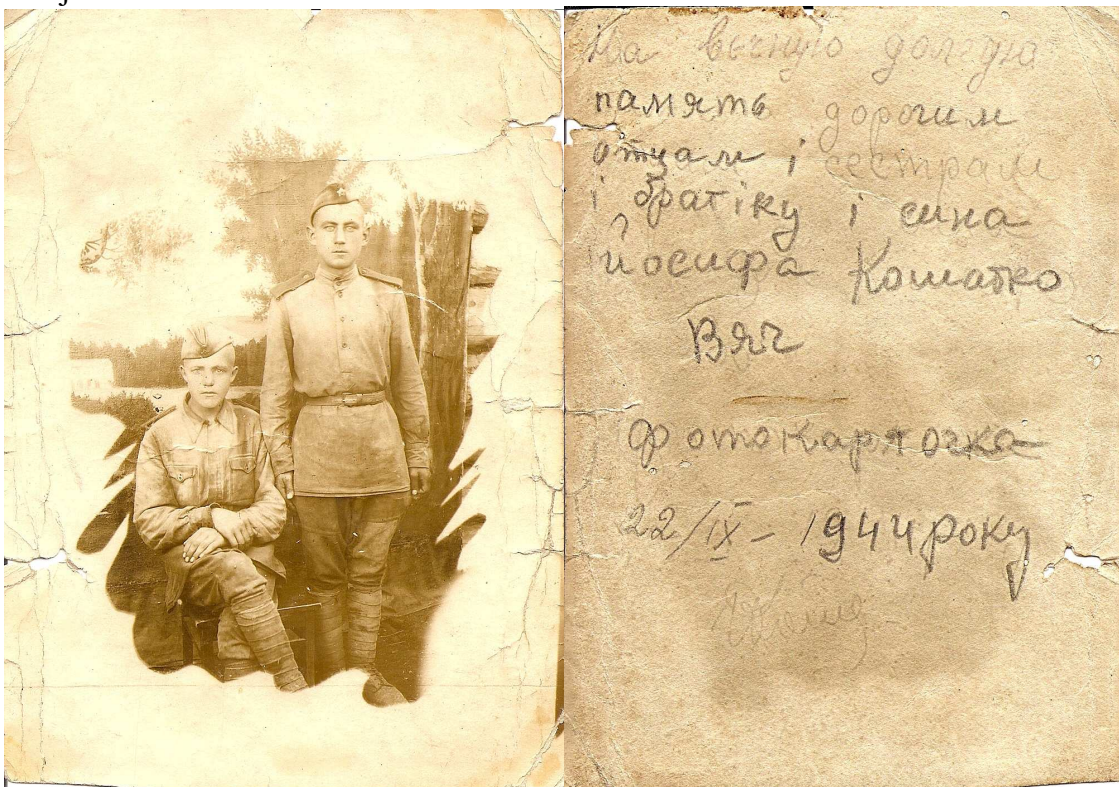 На вечную долгую
память дорогим
отцам і сестрам
і братіку і сина
Йосифа Кошатко
Вяч
фотокарточка
22/IX - 1944 року